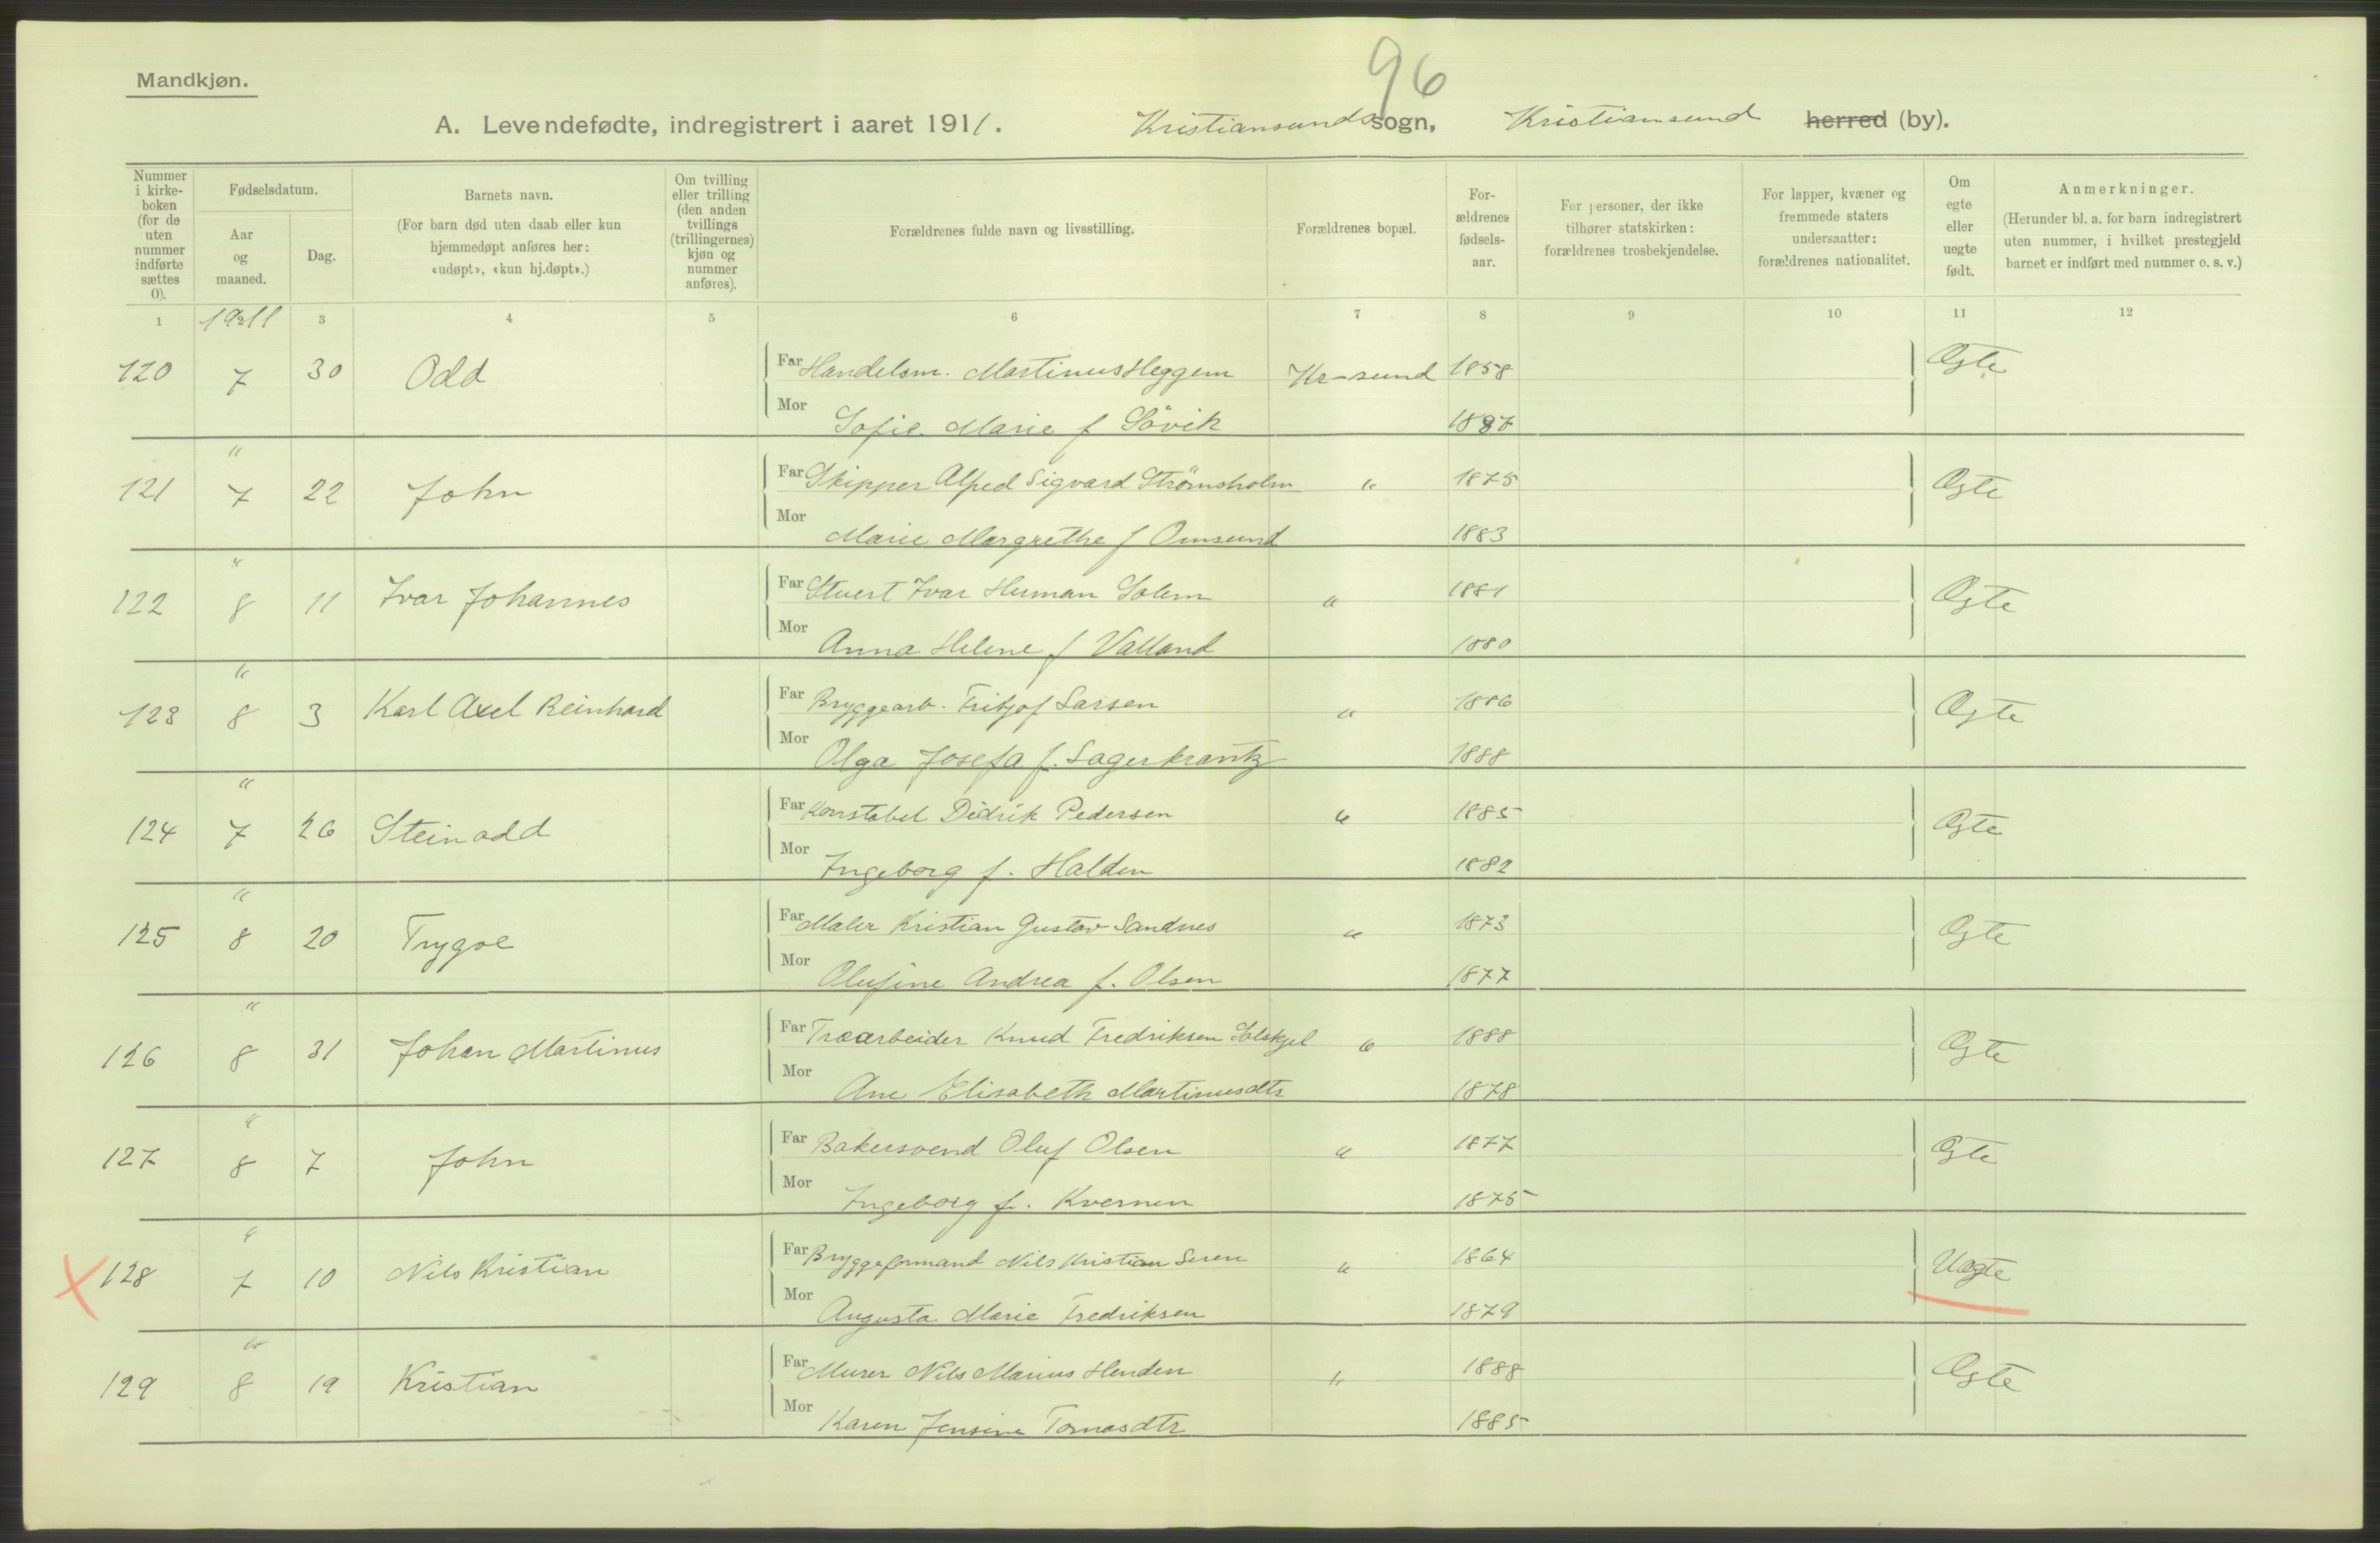 96
Mandkjøn.
A. Levendefødte, indregistrert i aaret 1911. Kristiansunds sogn, Kristiansund herred (by).
Nummer i kirke-boken (for de uten nummer indførte sættes 0).
Fødselsdatum.
Aar og maaned.
Dag.
Barnets navn.
(For barn død uten daab eller kun hjemmedøpt anføres her: «udøpt», «kun hj.døpt».)
Om tvilling eller trilling (den anden tvillings (trillingernes) kjøn og nummer anføres).
Forældrenes fulde navn og livsstilling.
Forældrenes bopæl.
For-ældrenes fødsels-aar.
For personer, der ikke tilhører statskirken: forældrenes trosbekjendelse.
For lapper, kvæner og fremmede staters undersaatter: forældrenes nationalitet.
Om egte eller uegte født.
Anmerkninger.
(Herunder bl. a. for barn indregistrert uten nummer, i hvilket prestegjeld barnet er indført med nummer o. s. v.)
1 2 3 4 5 6 7 8 9 10 11 12
1911
120 7 30 Odd Far Handelsm. Martinus Heggem Kr-sund 1858 Ægte
Mor Sofie Marie f Søvik 1887
"
121 7 22 John Far Skipper Alfred Sigvard Strømsholm " 1875 Ægte
Mor Marie Margrethe f Omsund 1883
"
122 8 11 Ivar Johannes Far Stuert Ivar Herman Solem " 1881 Ægte
Mor Anna Helene f Valland 1880
"
123 8 3 Karl Axel Reinhard Far Bryggearb. Fritjof Larsen " 1886 Ægte
Mor Olga Josefa f. Lagerkrantz 1888
"
124 7 26 Steinodd Far Konstabel Didrik Pedersen " 1885 Ægte
Mor Ingeborg f. Halden 1882
"
125 8 20 Trygve Far Maler Kristian Gustav Sandnes " 1873 Ægte
Mor Olufine Andrea f. Olsen 1877
"
126 8 31 Johan Martinus Far Træarbeider Knud Fredriksen Solskjel " 1888 Ægte
Mor Ane Elisabeth Martinusdtr 1878
"
127 8 7 John Far Bakersvend Oluf Olsen " 1877 Ægte
Mor Ingeborg f. Kvernen 1875
"
128 7 10 Nils Kristian Far Bryggeformand Nils Kristian " 1864 Uægte
Mor Augusta Marie Fredriksen 1879
"
129 8 19 Kristian Far Murer Nils Marius Henden " 1888 Ægte
Mor Karen Jensine Tomasdtr 1885